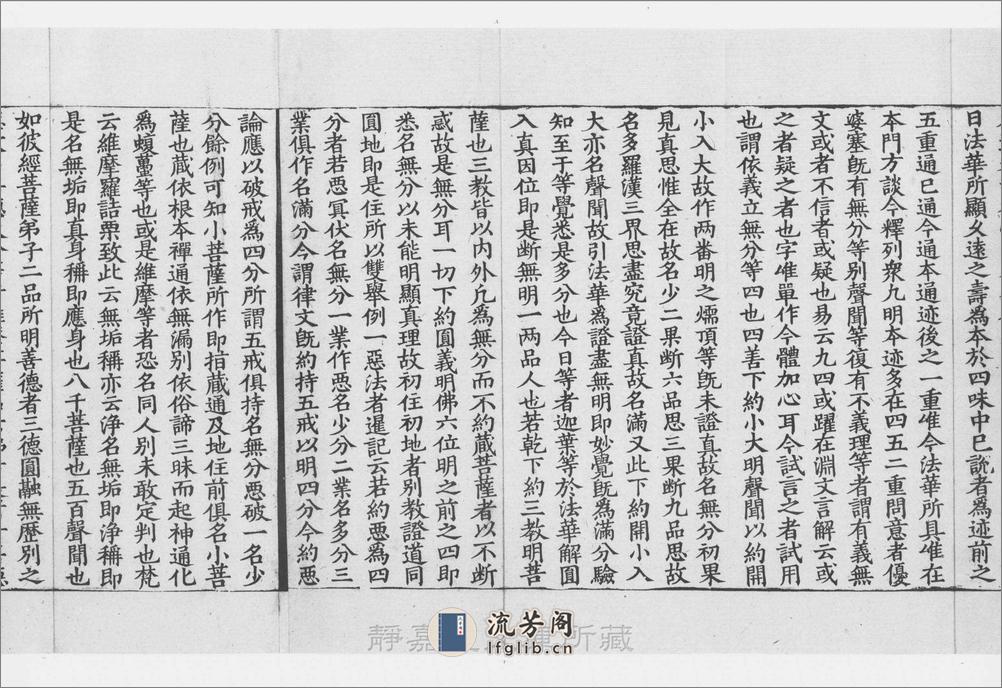 日法華所顯久遠之壽為本於四味中已說者為迹前之
五重通已通今通本通迹後之一重唯今法華所具唯在
本門方談今釋列衆九明本迹多在四五二重問意者優
婆塞旣有無分等別聲聞等復有不義理等者謂有義無
文或者不信者或疑也易云九四或躍在淵文言解云或
之者疑之者也字唯單作今體加心耳今試言之者試用
也謂依義立無分等四也四善下約小大明聲聞以約開
小入大故作兩番明之煗頂等旣未證真故名無分初果
見真思惟全在故名少二果断六品思三果断九品思故
名多羅漢三界思盡究竟證真故名滿又此下約開小入
大亦名聲聞故引法華為證盡無明即妙覺旣為滿分驗
知至于等覺悉是多分也今日等者迦葉等於法華解圓
入真因位即是断無明一兩品人也若乾下約三教明菩
薩也三教皆以内外凡為無分而不約蔵菩薩者以不断
惑故是無分耳一切下約圓義明佛六位明之前之四即
悉名無分以未能明顯真理故初住初地者別教證道同
圓地即是住所以雙舉例一惡法者暹記云若約惡為四
分者若惡冥伏名無分一業作惡名少分二業名多分三
業俱作名滿分今謂律文旣約持五戒以明四分今約惡
論應以破戒為四分所謂五戒俱持名無分惡破一名少
分餘例可知小菩薩所作即指蔵通及地住前俱名小菩
薩也蔵依根本禪通依無漏別依俗諦三昧而起神通化
為蝡蠆等也或是維摩等者恐名同人別未敢定判也梵
云維摩羅詰栗致此云無垢稱亦云淨名無垢即淨稱即
是名無垢即真身稱即應身也八千菩薩也五百聲聞也
如彼經菩薩弟子二品所明善德者三德圓融無歷別之
靜嘉 所藏
流芳阁
lfglib.cn